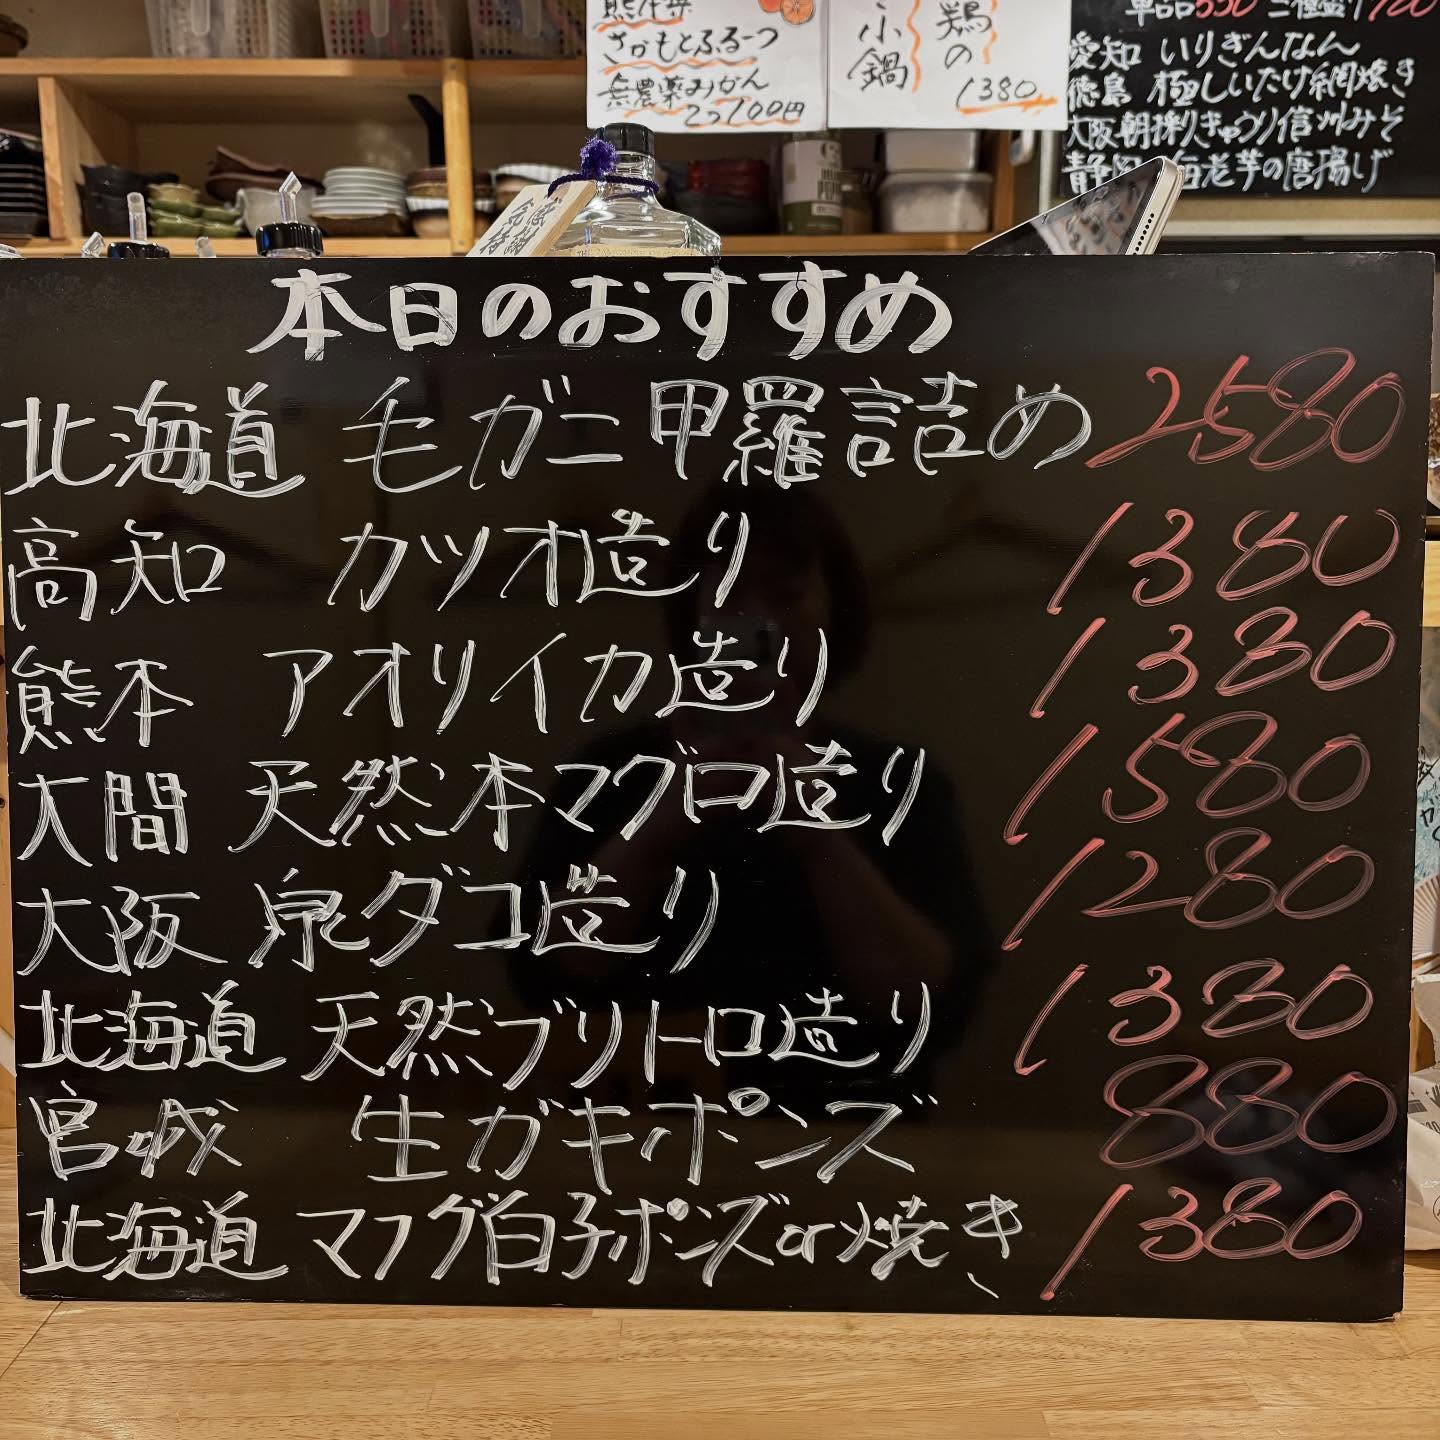 さかもとふるーつ
無農薬みかん
2コ700円
小鍋
鶏の
1380
単品550 三種盛り
愛知 いりぎんなん
徳島 極しいたけ網焼き
大阪 朝採りきゅうり信州みそ
静岡 海老芋の唐揚げ
本日のおすすめ
北海道 毛ガニ甲羅詰め 2580
高知 カツオ造り 1380
熊本 アオリイカ造り 1380
大間 天然本マグロ造り 1580
大阪 泉ダコ造り 1280
北海道 天然ブリトロ造り 1380
宮城 生ガキポンズ 880
北海道 マフグ白子ポンズor焼き 1380